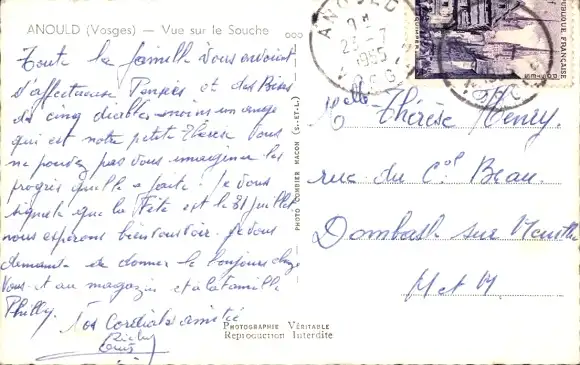 ANOULD (Vosges) — Vue sur le Souche
Toute la famille vous envoient
d'affectueuse Pensées et des Bises
des cinq diables moins un ange
qui est notre petite Thérèse Vous
ne pouvez pas vous imaginer les
progrès quelle a faite. Je vous
signale que la Fête est le 31 juillet
nous espérons bien vous voir. Je vous
demande de donner le bonjour chez
vous et au magazin et à la famille
Philly.
Nos Cordiales amitié
PHOTO COMBIER MACON (S.-ET-L.)
PHOTOGRAPHIE VÉRITABLE
Reproduction Interdite
ANOULD
23-7
1955
VOSGES
RÉPUBLIQUE FRANÇAISE
Melle Thérèse Henry.
rue du Col Beau.
Dombasle sur Meurthe
M et M.